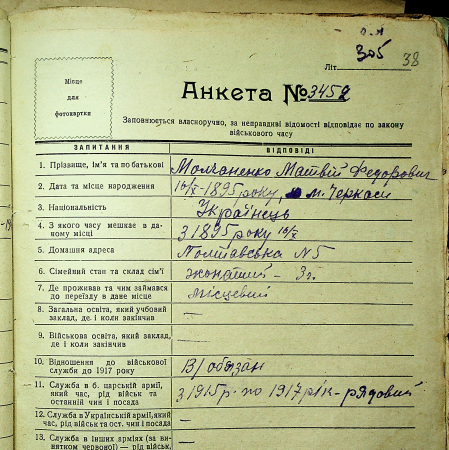 305
38
Літ.
Місце
для
фотокартки
Анкета № 3452
Заповнюється власноручно, за неправдиві відомості відповідає по закону
військового часу
ЗАПИТАННЯ ВІДПОВІДІ
1. Прізвище, ім'я та по батькові Молчаненко Матвій Федорович
2. Дата та місце народження 16/X-1895 року, м. Черкаси
3. Національність Українець
4. З якого часу мешкає в да-
ному місці З 1895 року 16/X
5. Домашня адреса Полтавська N 5
6. Сімейний стан та склад сім'ї жонатий - 3 г.
7. Де проживав та чим займався
до переїзду в дане місце місцевий
8. Загальна освіта, який учбовий
заклад, де і коли закінчив —
9. Військова освіта, який заклад,
де і коли закінчив —
10. Відношення до військової
служби до 1917 року В/обязан
11. Служба в б. царській армії,
який час, рід військ та
останній чин і посада з 1915 р. по 1917 рік - рядовий
12. Служба в Українській армії, який
час, рід військ та ост. чин і посада —
13. Служба в інших арміях (за ви-
нятком червоної) — рід військ,